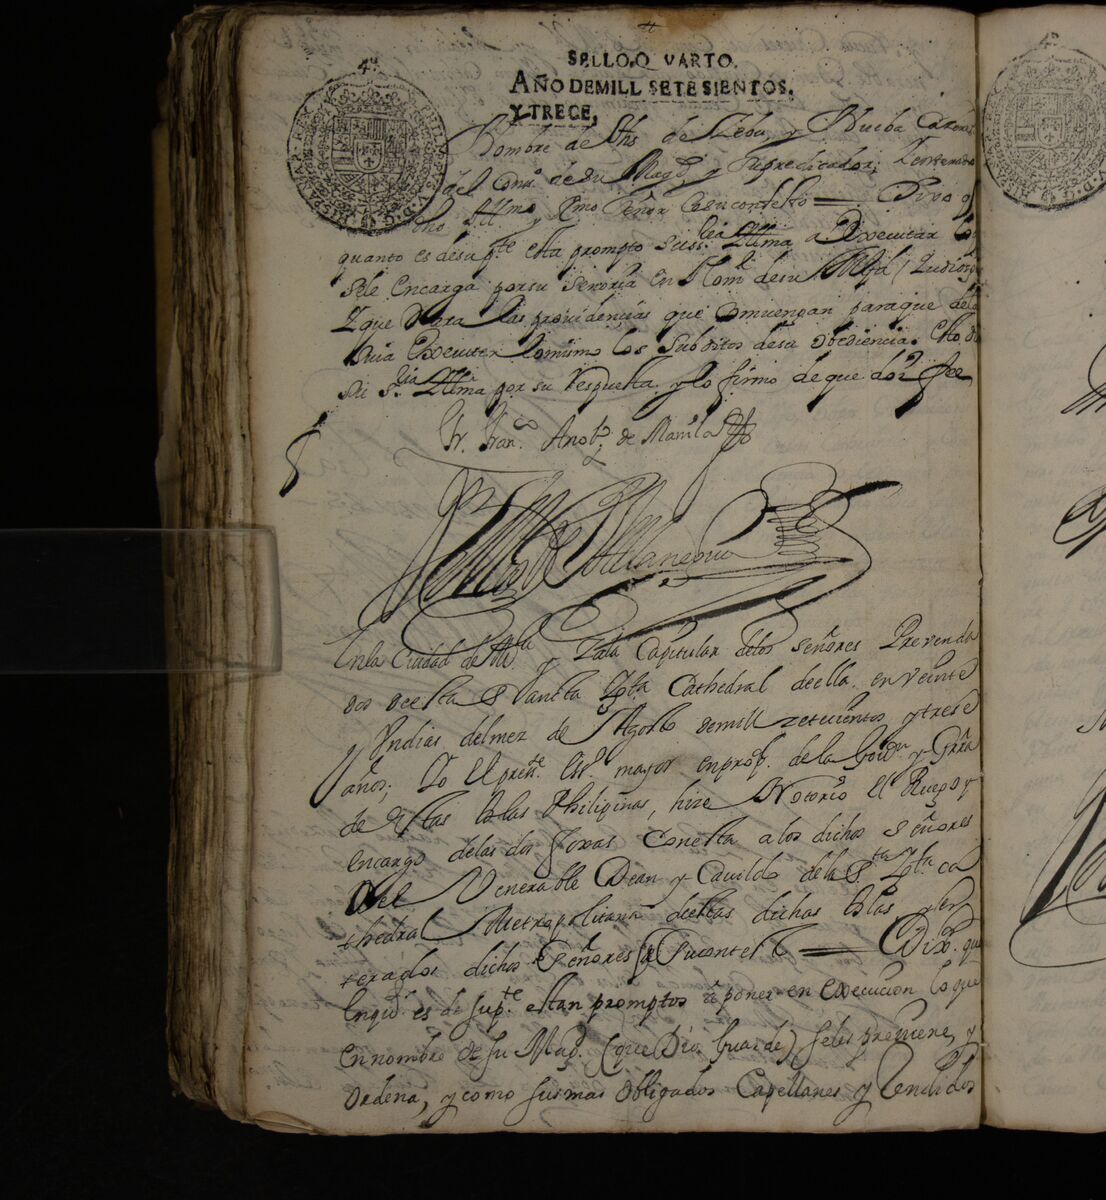 SELLO.QVARTO.
AÑO DEMILL SETESIENTOS.
Y TRECE,
4º
HISPANIAR. REX PHILIPPVS V. D. G.
Nombre de de Zebu, y Nueba Carzeres
del Cons.º de su Mag.d, y Supredicador;
dho Ill.mo y S.mo Señor Casucontesto = Dixo q
quanto es desu p.te esta prompto suss.ria Yllma a Executar lo q
sele encarga porsu Señoria en Nom.e desu Mgd
Y que dara las providencias que Combuengan paraque de
Executar lomismo los Subditos desu obediencia. Esto
Su S.ria Yllma por su respuesta y lo firmo de que doi fee
Fr. Fran.co Arzob.po de Manila
Enla Ciudad de M.la y Zala Capitular delos señores Prevenda
dos deesta Sancta Ygl.ta Cathedral deella. en veinte
y Un dias delmez de Agosto demill zetecientos y trese
años, Yo El prez.te Es.no mayor enprop.d dela Gov.on y Grra
de estas Yslas Philipinas, hize Notorio El Ruego y
encargo delas dos foxas Conesta alos dichos señores
Del Venerable Dean y Cavildo dela S.ta Ygl.ta Ca
thedral Metropolitana destas dichas Yslas yen
terados dichos Señores Desucontexto = Dix.n que
enq.to es de su p.te estan promptos à poner en execucion loque
en nombre de su Mag.d (que Dios Guarde) seles previene, y
Ordena, y como susmas obligados Capellanes y Rendidos